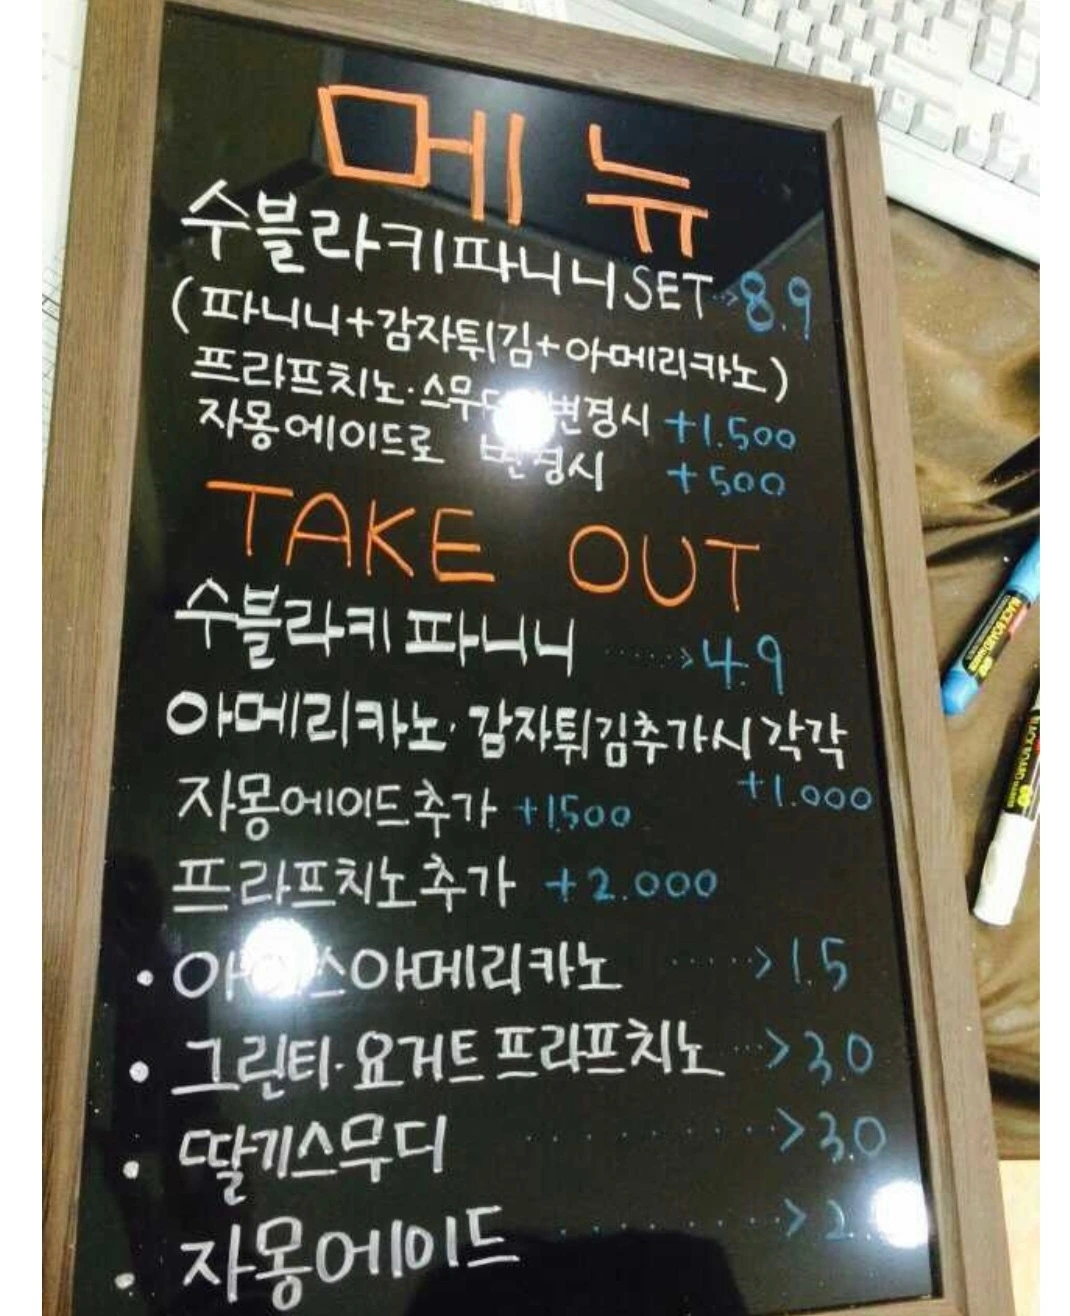 메뉴
수블라키파니니 SET ··>8.9
(파니니+감자튀김+아메리카노)
프라프치노·스무디 변경시 +1.500
자몽에이드로 변경시 +500
TAKE OUT
수블라키 파니니 ·····>4.9
아메리카노·감자튀김추가시 각각
+1.000
자몽에이드추가 +1500
프라프치노추가 +2.000
• 아이스아메리카노 ·····>1.5
• 그린티·요거트 프라프치노 ··>3.0
• 딸기스무디 ··········>3.0
• 자몽에이드 ··········>2.
BLACK BOARD MARKER